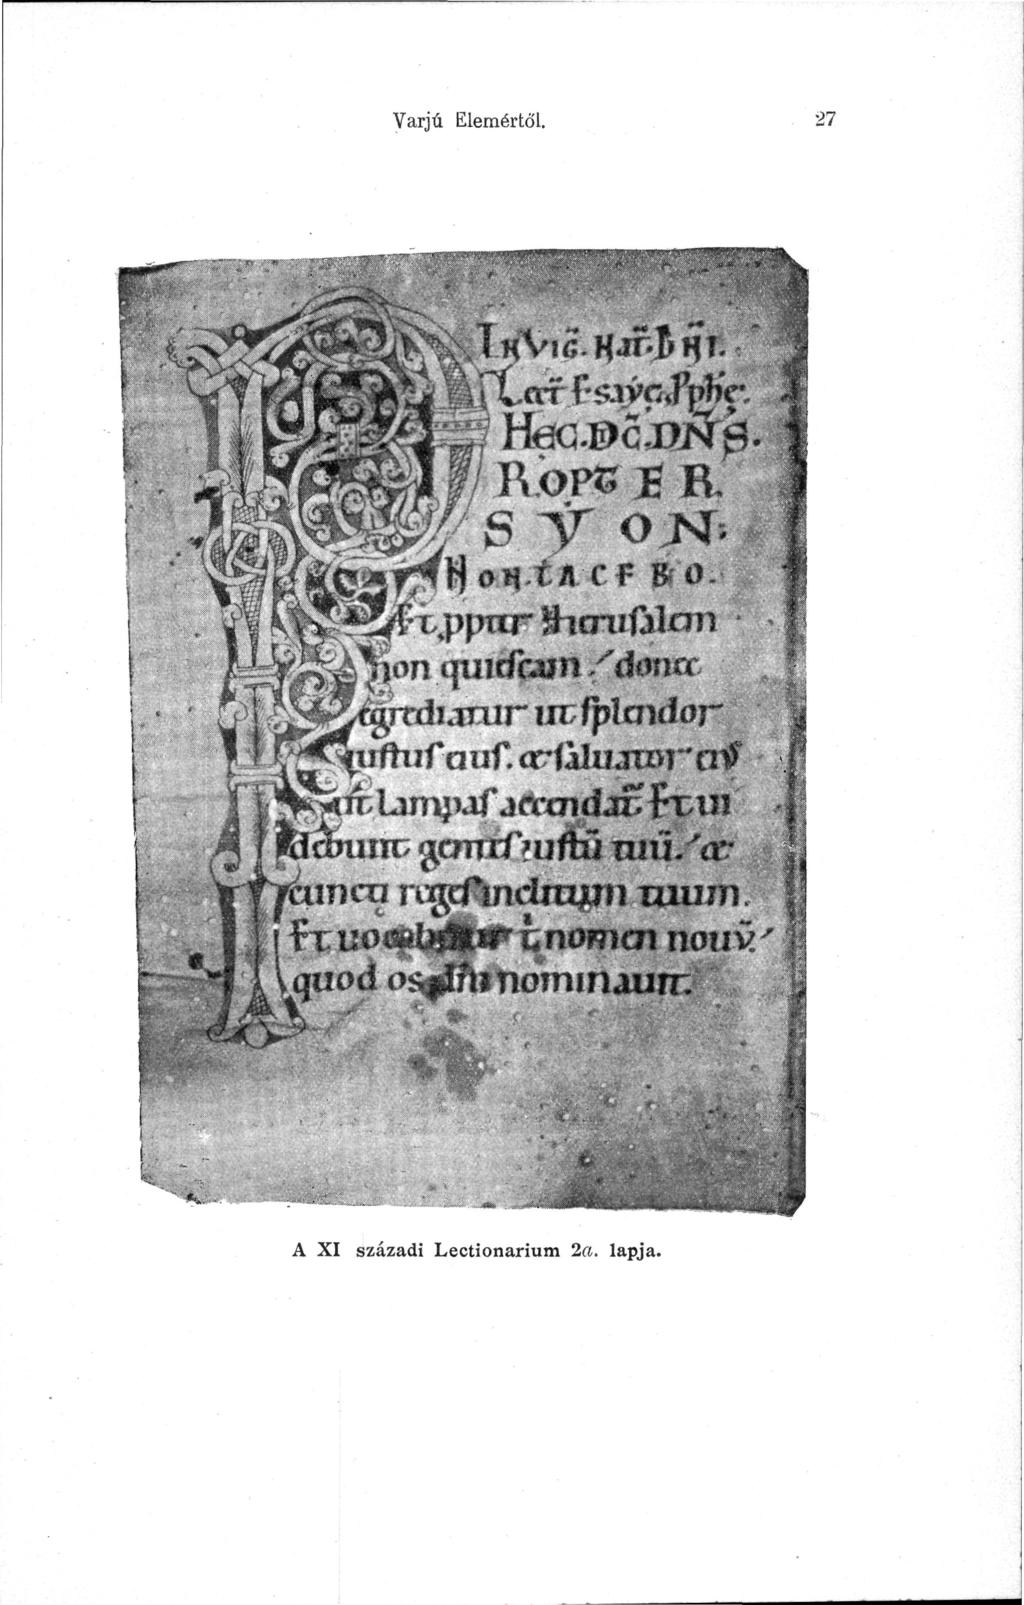 Varjú Elemértől.
27
IN VIG̅. NAT̅. DN̅I.
Lect̅ Esayę Pphę.
HEC.DC̅.DN̅S.
PROPTER
SYON
NON TACEBO.
Et ppter Hierusalem
non quiescam. donec
egrediatur ut splendor
iustus eius. & saluator eiꝰ
ut lampas accendat̅ Et ui
debunt gentes iustū tuū. &
cuncti reges inclitum tuum.
Et uocabitur t̅ nomen nouū.
quod os dn̅i nominauit.
A XI századi Lectionarium 2a. lapja.